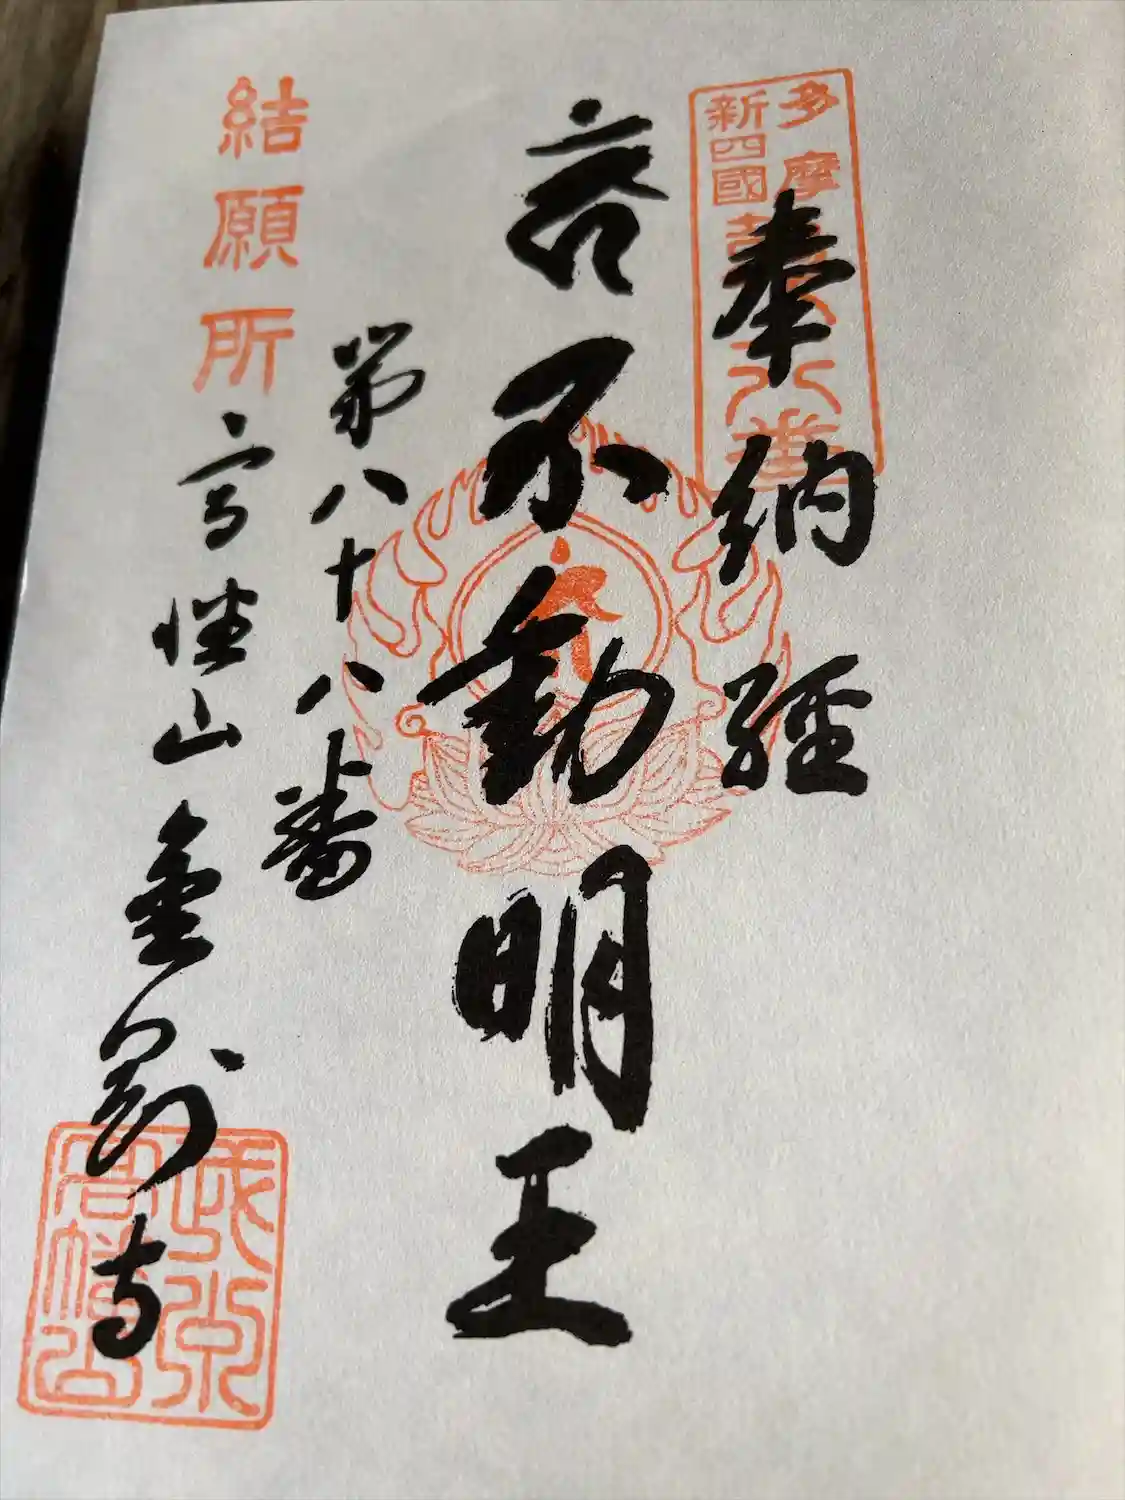 多摩
新四國
八十八番
奉納経
不動明王
第八十八番
結願所
高幡山金剛寺